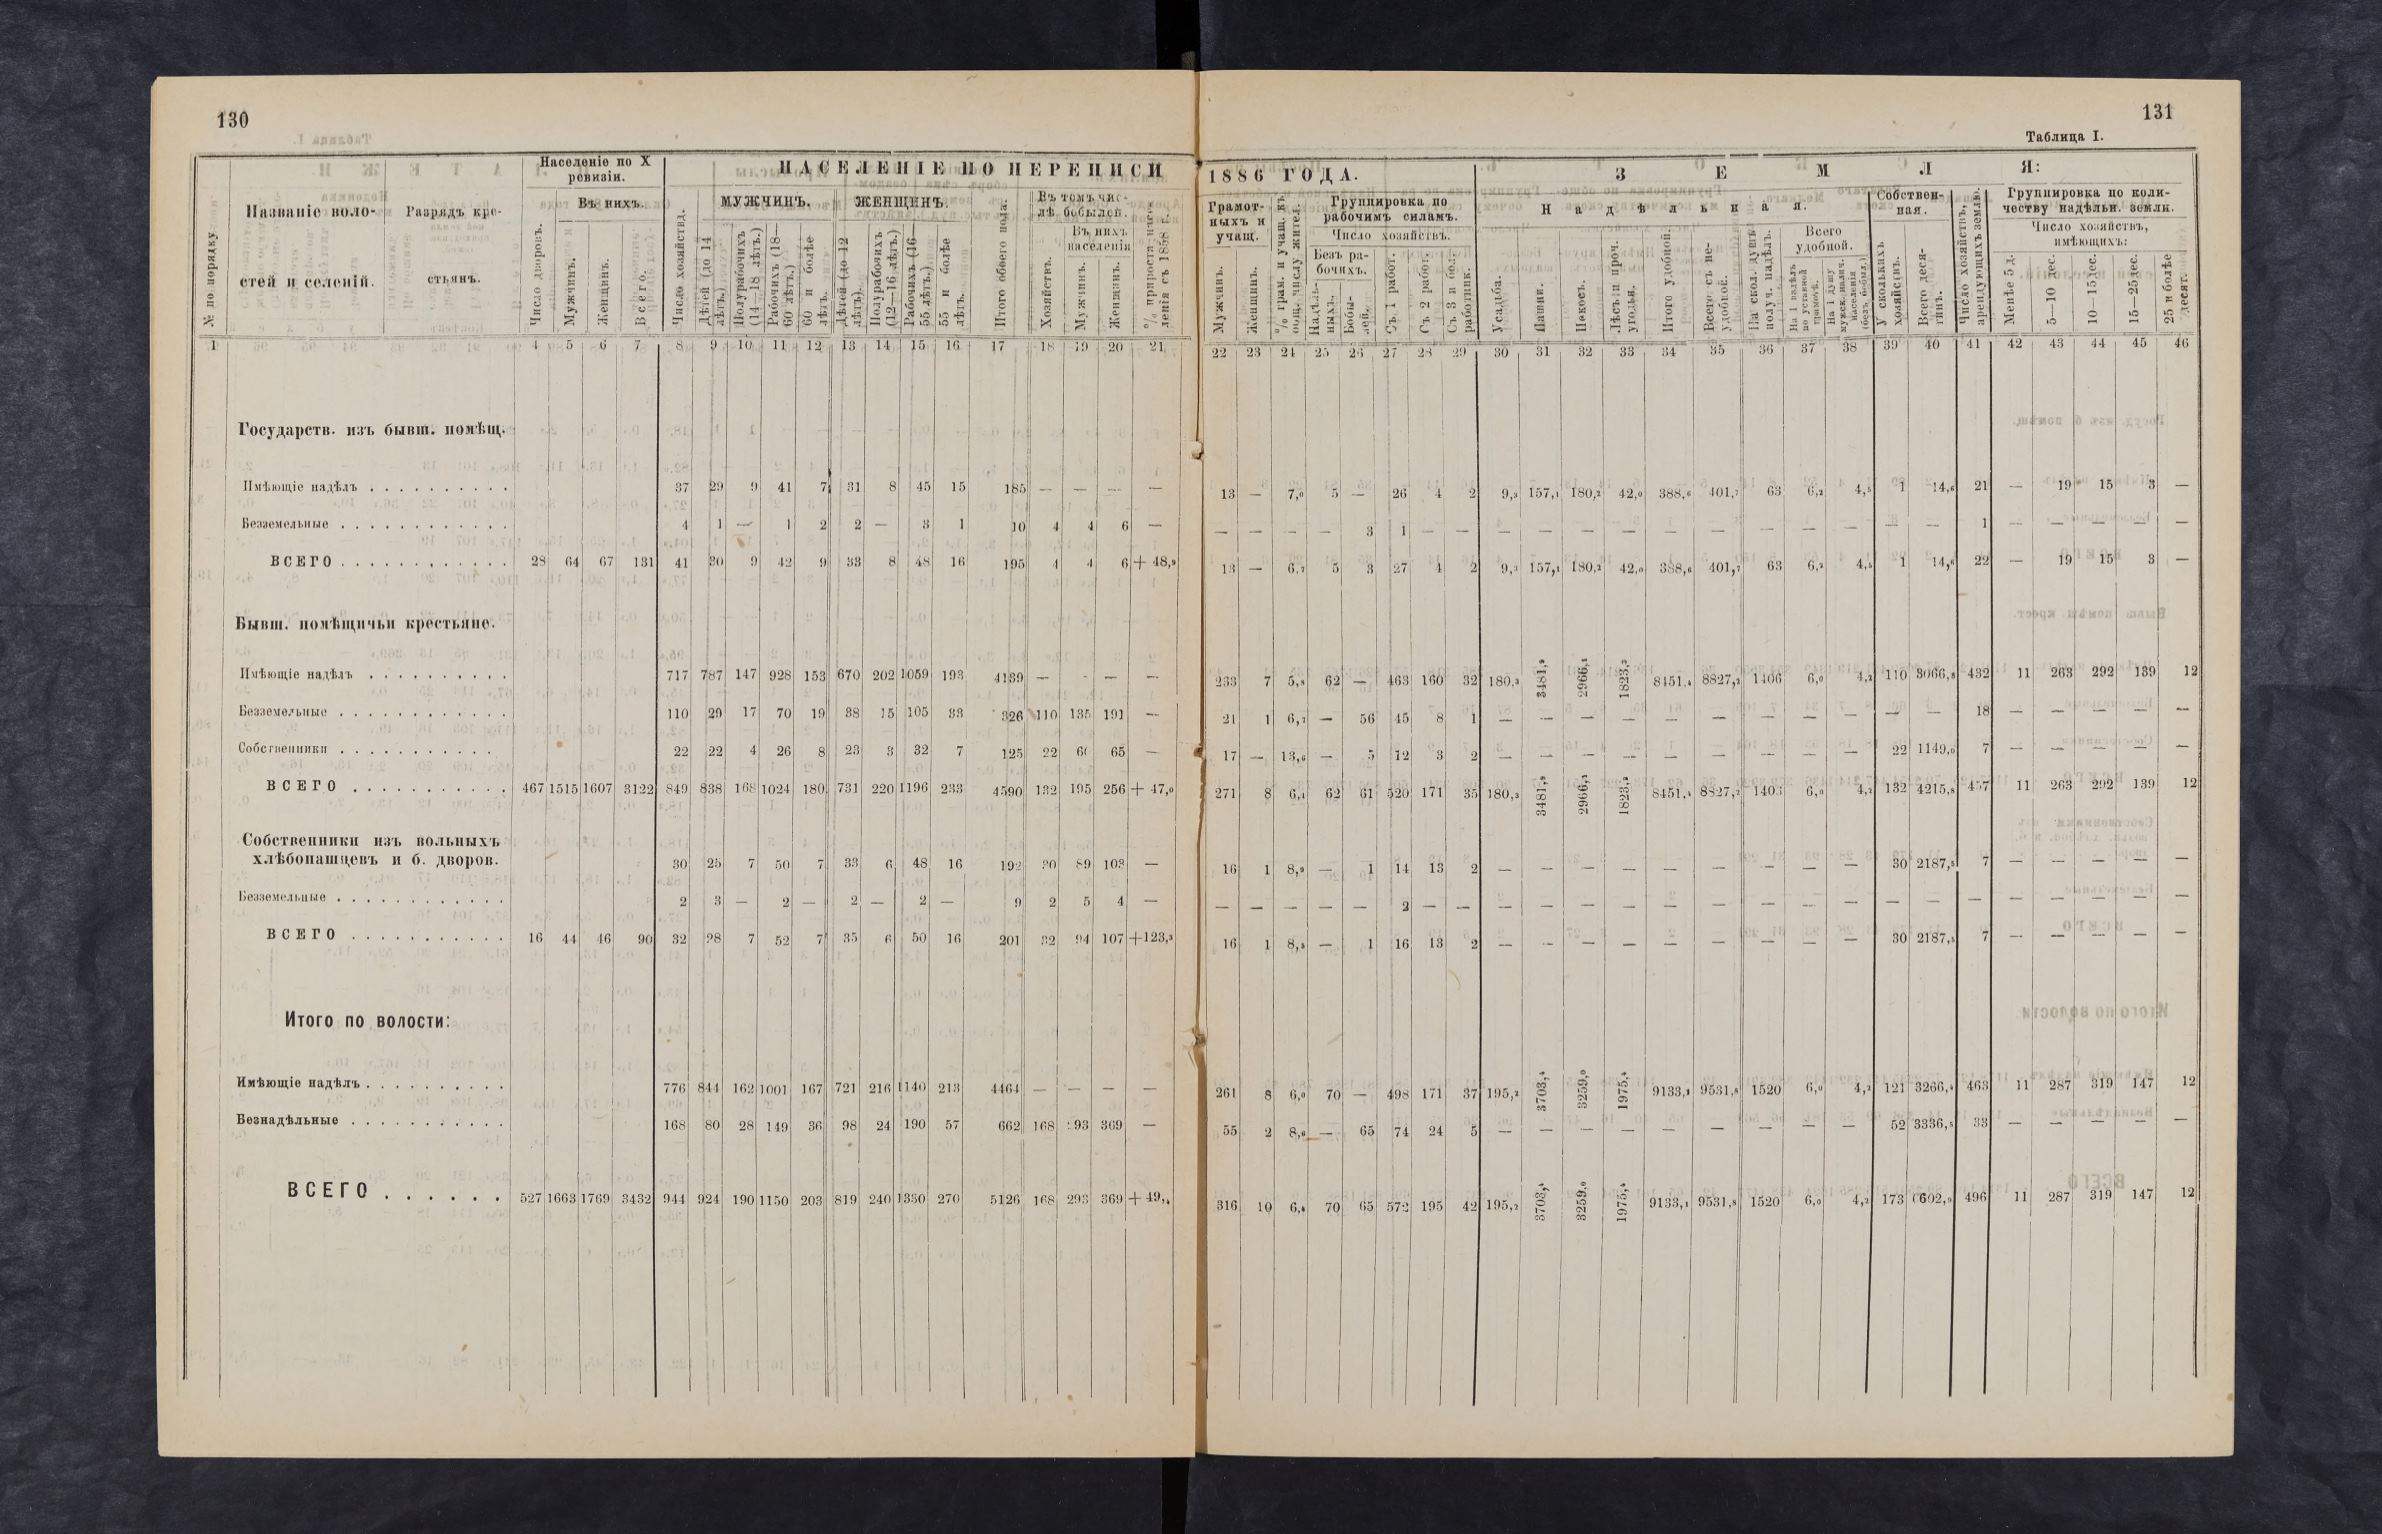 130
131
Таблица I.
№ по порядку.
Названіе воло-
стей и селеній.
Разрядъ кре-
стьянъ.
Населеніе по X
ревизіи.
Число дворовъ.
Въ нихъ.
Мужчинъ.
Женщинъ.
Всего.
НАСЕЛЕНІЕ ПО ПЕРЕПИСИ
1886 ГОДА.
Число хозяйствъ.
МУЖЧИНЪ.
Дѣтей (до 14 лѣтъ.)
Полурабочихъ (14—18 лѣтъ.)
Рабочихъ (18—60 лѣтъ.)
60 и болѣе лѣтъ.
ЖЕНЩИНЪ.
Дѣтей (до 12 лѣтъ).
Полурабочихъ (12—16 лѣтъ.)
Рабочихъ (16—55 лѣтъ.)
55 и болѣе лѣтъ.
Итого обоего пола.
Въ томъ чис-
лѣ бобылей.
Хозяйствъ.
Въ нихъ
населенія
Мужчинъ.
Женщинъ.
% прироста насе-
ленія съ 1858 г.
Грамот-
ныхъ и
учащ.
Мужчинъ.
Женщинъ.
% грам. и учащ. къ
общ. числу жител.
Группировка по
рабочимъ силамъ.
Число хозяйствъ.
Безъ ра-
бочихъ.
Надѣль-
ныхъ.
Бобы-
лей.
Съ 1 работ.
Съ 2 работ.
Съ 3 и бол. работник.
З Е М Л Я:
Надѣльная.
Усадьба.
Пашни.
Покосъ.
Лѣсъ и проч. угодья.
Итого удобной.
Всего съ не-
удобной.
На скол. душъ
получ. надѣлъ.
Всего
удобной.
На 1 надѣлъ
по уставной
грамотѣ.
На 1 душу
мужск. налич.
населенія
(безъ бобыл.)
Собствен-
ная.
У сколькихъ
хозяйствъ.
Всего деся-
тинъ.
Число хозяйствъ,
арендующихъ землю.
Группировка по коли-
честву надѣльн. земли.
Число хозяйствъ,
имѣющихъ:
Менѣе 5 д.
5—10 дес.
10—15 дес.
15—25 дес.
25 и болѣе десят.
1 4 5 6 7 8 9 10 11 12 13 14 15 16 17 18 19 20 21 22 23 24 25 26 27 28 29 30 31 32 33 34 35 36 37 38 39 40 41 42 43 44 45 46
Государств. изъ бывш. помѣщ.
Имѣющіе надѣлъ . . . . . . . . . . 37 29 9 41 7 31 8 45 15 185 — — — — 13 — 7,0 5 — 26 4 2 9,3 157,1 180,2 42,0 388,6 401,7 63 6,2 4,5 1 14,6 21 — 19 15 3 —
Безземельные . . . . . . . . . . . . 4 1 — 1 2 2 — 3 1 10 4 4 6 — — — — — 3 1 — — — — — — — — — — — — — 1 — — — — —
ВСЕГО . . . . . . . . . . . . 28 64 67 131 41 30 9 42 9 33 8 48 16 195 4 4 6 + 48,9 13 — 6,7 5 3 27 4 2 9,3 157,1 180,2 42,0 388,6 401,7 63 6,2 4,5 1 14,6 22 — 19 15 3 —
Бывш. помѣщичьи крестьяне.
Имѣющіе надѣлъ . . . . . . . . . . 717 787 147 928 153 670 202 1059 193 4139 — - — — 233 7 5,8 62 — 463 160 32 180,3 3481,9 2966,1 1823,2 8451,4 8827,2 1406 6,0 4,2 110 3066,8 432 11 263 292 139 12
Безземельные . . . . . . . . . . . . 110 29 17 70 19 38 15 105 33 326 110 135 191 — 21 1 6,7 — 56 45 8 1 — — — — — — — — — — — 18 — — — — —
Собственники . . . . . . . . . . . 22 22 4 26 8 23 3 32 7 125 22 60 65 — 17 — 13,6 — 5 12 3 2 — — — — — — — — — 22 1149,0 7 — — — — —
ВСЕГО . . . . . . . . . . . 467 1515 1607 3122 849 838 168 1024 180 731 220 1196 233 4590 132 195 256 + 47,0 271 8 6,1 62 61 520 171 35 180,3 3481,9 2966,1 1823,2 8451,4 8827,2 1406 6,0 4,2 132 4215,8 457 11 263 292 139 12
Собственники изъ вольныхъ
хлѣбопашцевъ и б. дворов. 30 25 7 50 7 33 6 48 16 192 30 89 103 — 16 1 8,9 — 1 14 13 2 — — — — — — — — — 30 2187,5 7 — — — — —
Безземельные . . . . . . . . . . . . 2 3 — 2 — 2 — 2 — 9 2 5 4 — — — — — — 2 — — — — — — — — — — — — — — — — — — —
ВСЕГО . . . . . . . . . . . 16 44 46 90 32 28 7 52 7 35 6 50 16 201 32 94 107 +123,3 16 1 8,5 — 1 16 13 2 — — — — — — — — — 30 2187,5 7 — — — — —
Итого по волости:
Имѣющіе надѣлъ . . . . . . . . . . 776 844 162 1001 167 721 216 1140 213 4464 — — — — 261 8 6,0 70 — 498 171 37 195,2 3703,4 3259,0 1975,4 9133,1 9531,8 1520 6,0 4,2 121 3266,4 463 11 287 319 147 12
Безнадѣльные . . . . . . . . . . . 168 80 28 149 36 98 24 190 57 662 168 293 369 — 55 2 8,6 — 65 74 24 5 — — — — — — — — — 52 3336,5 33 — — — — —
ВСЕГО . . . . . . 527 1663 1769 3432 944 924 190 1150 203 819 240 1330 270 5126 168 293 369 + 49,4 316 10 6,4 70 65 572 195 42 195,2 3703,4 3259,0 1975,4 9133,1 9531,8 1520 6,0 4,2 173 6602,9 496 11 287 319 147 12